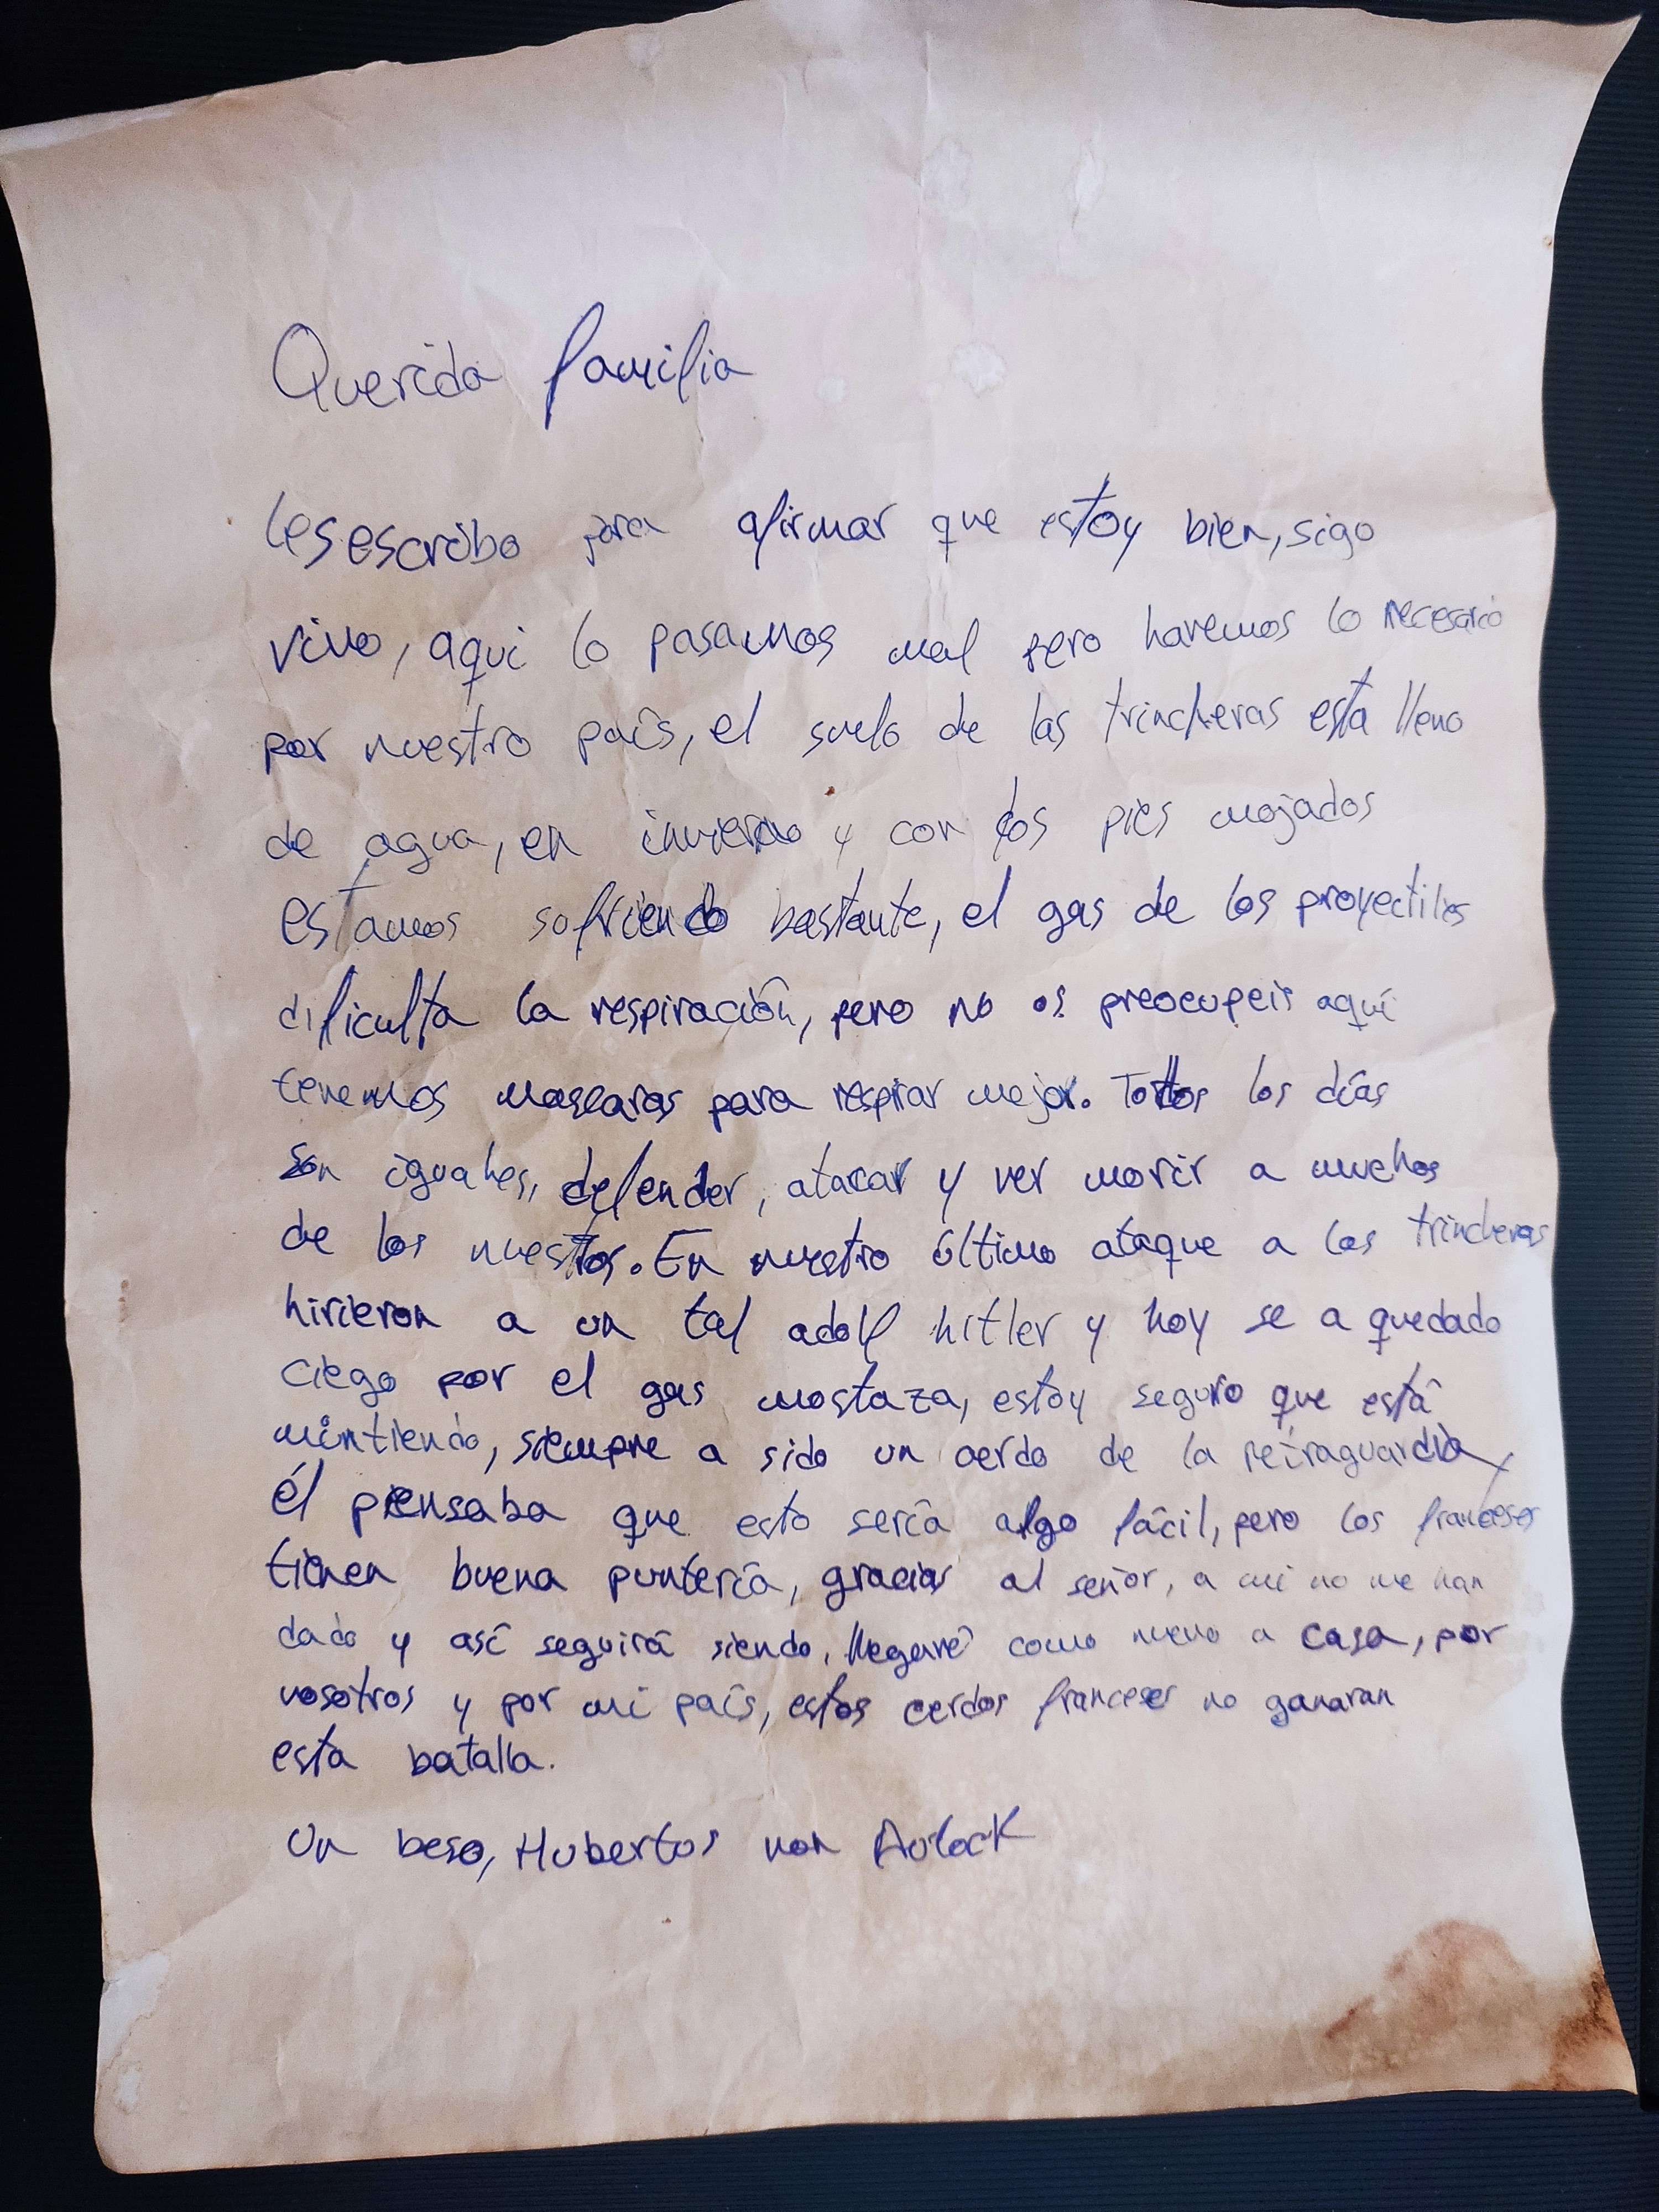 Querida familia
les escribo para afirmar que estoy bien, sigo
vivo, aqui lo pasamos mal pero haremos lo necesario
por nuestro país, el suelo de las trincheras esta lleno
de agua, en invierno y con los pies mojados
estamos sufriendo bastante, el gas de los proyectiles
dificulta la respiración, pero no os preocupeis aquí
tenemos mascaras para respirar mejor. Todos los días
son iguales, defender, atacar y ver morir a muchos
de los nuestros. En nuestro último ataque a las trincheras
hirieron a un tal adolf hitler y hoy se a quedado
ciego por el gas mostaza, estoy seguro que está
mintiendo, siempre a sido un cerdo de la retraguardia,
él piensaba que esto sería algo fácil, pero los franceses
tienen buena puntería, gracias al señor, a mi no me han
dado y así seguirá siendo, llegaré como nuevo a casa, por
vosotros y por mi país, estos cerdos franceses no ganaran
esta batalla.
Un beso, Hubertus von Aulock